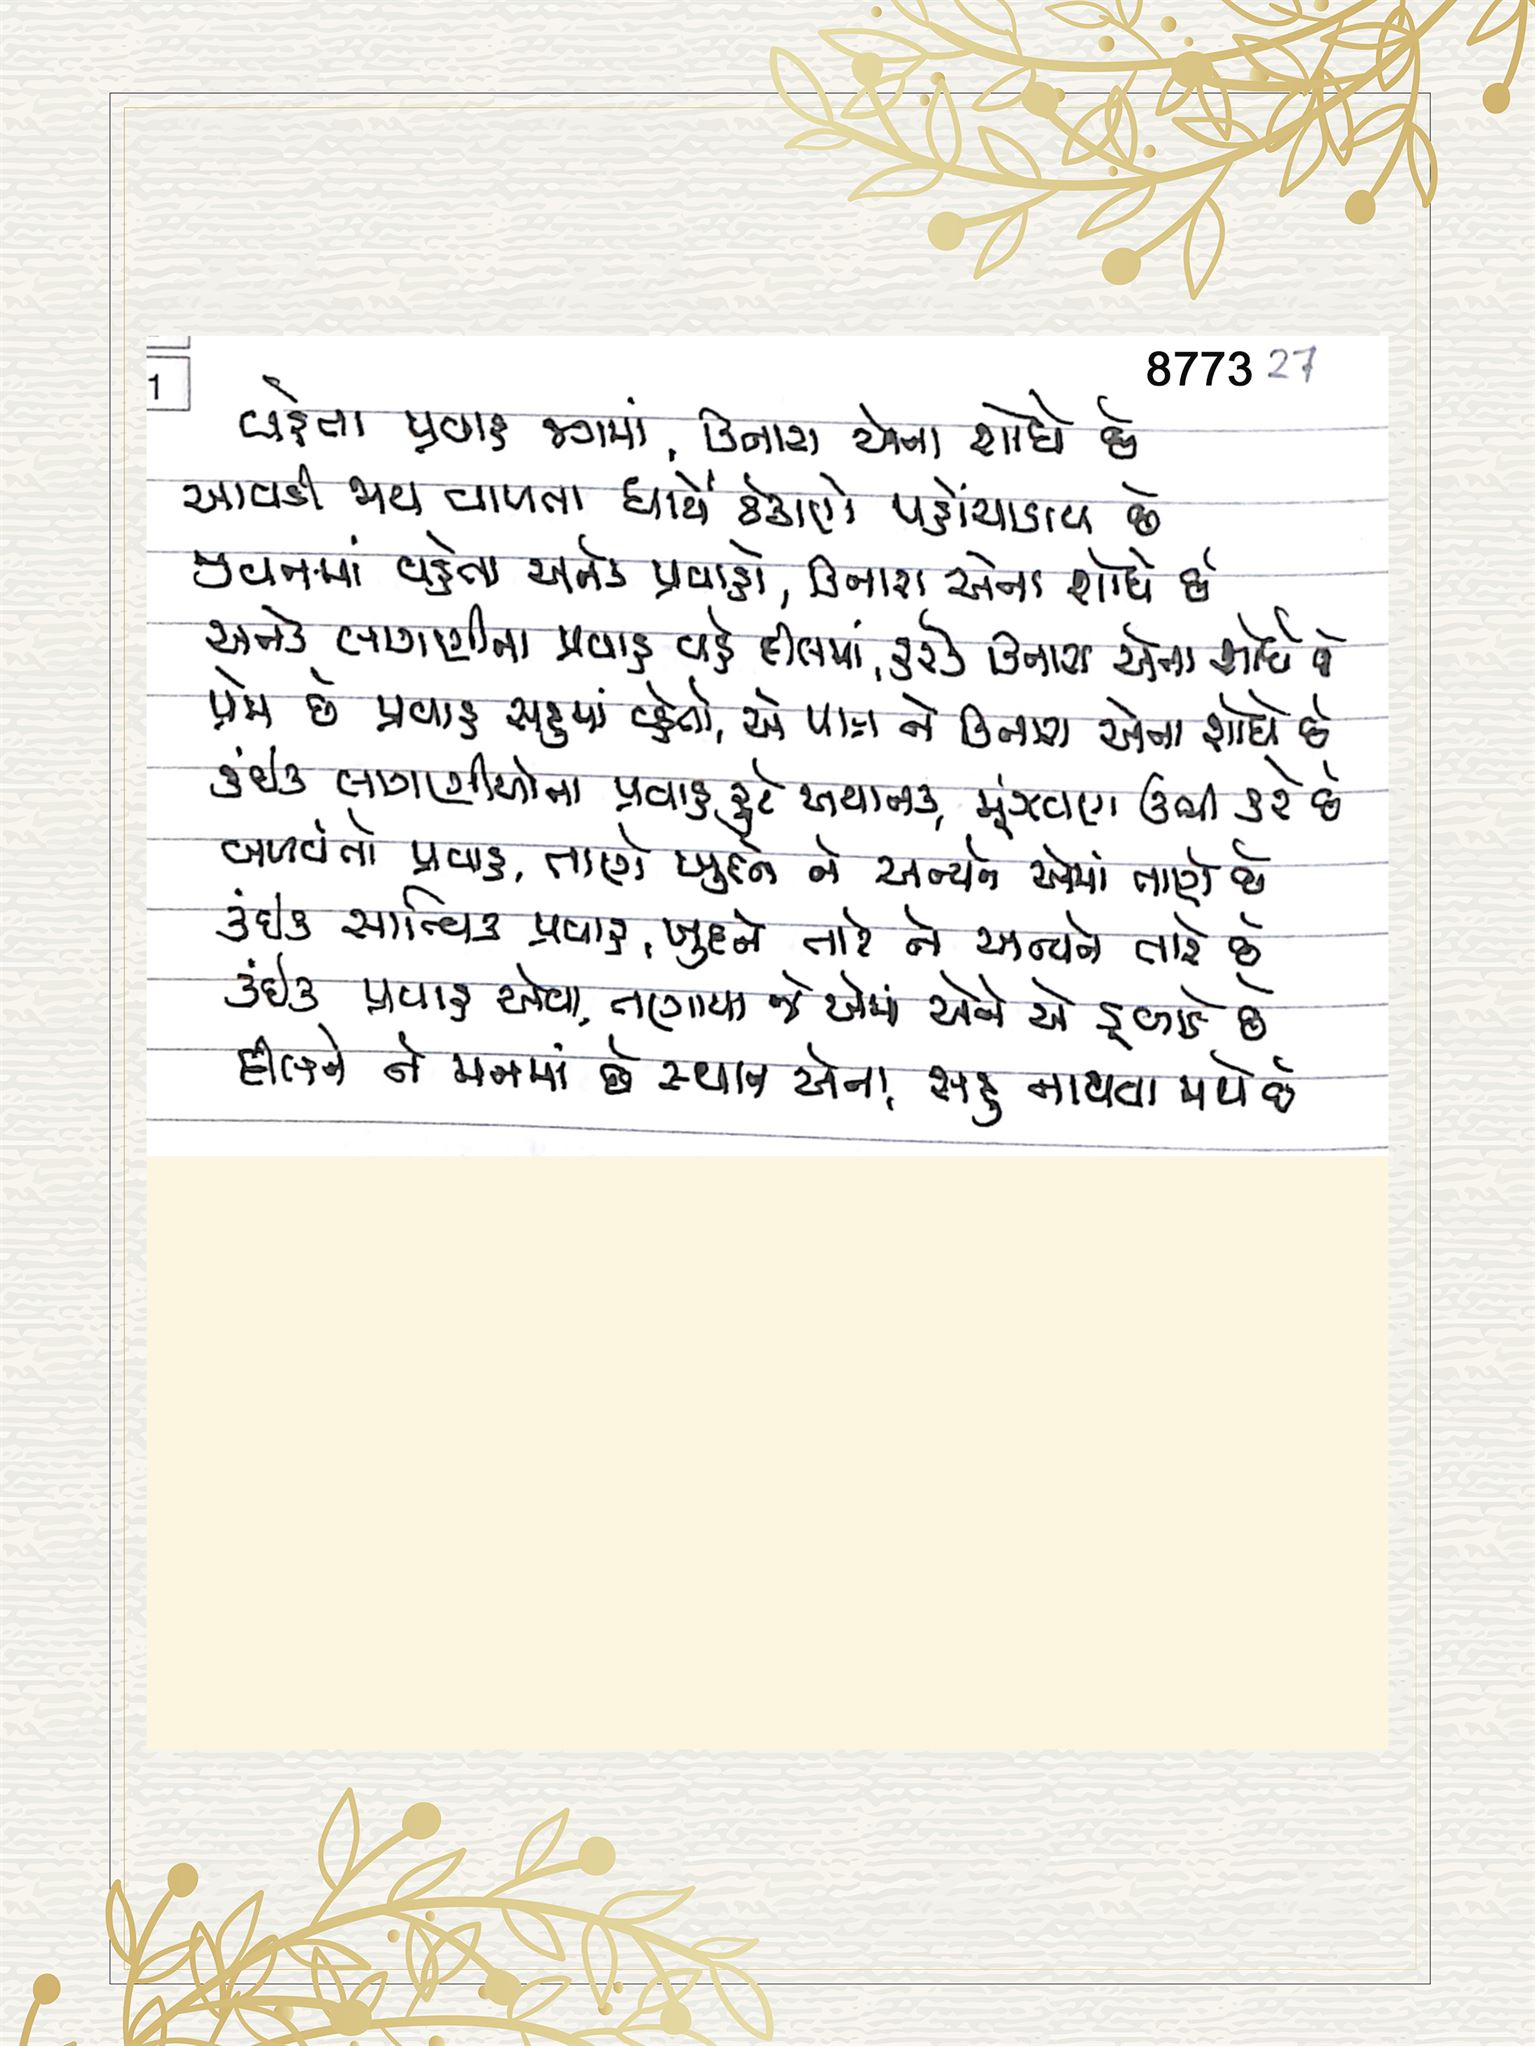 8773 27
1
વહેતા પ્રવાહ જગમાં, કિનારા એના શોધે છે
આવડી ભય વાળતા ધાર્યે ઠેકાણે પહોંચાડાય છે
જીવનમાં વહેતા અનેક પ્રવાહો, કિનારા એના શોધે છે
અનેક લાગણીના પ્રવાહ વહે દીલમાં, હરેક કિનારા એના શોધે છે
પ્રેમ છે પ્રવાહ સહુમાં વહેતો, એ પણ ને કિનારા એના શોધે છે
કંઈક લાગણીઓના પ્રવાહ ફુટે અચાનક, મૂંઝવણ ઉભી કરે છે
બળવંતો પ્રવાહ, તાણે ખુદને ને અન્યને એમાં તાણે છે
કંઈક સાત્ત્વિક પ્રવાહ, ખુદને તારે ને અન્યને તારે છે
કંઈક પ્રવાહ એવા, તણાયા જે એમાં એને એ ડૂબાડે છે
દીલને ને મનમાં છે સ્થાન એના, સહુ નાથવા મથે છે